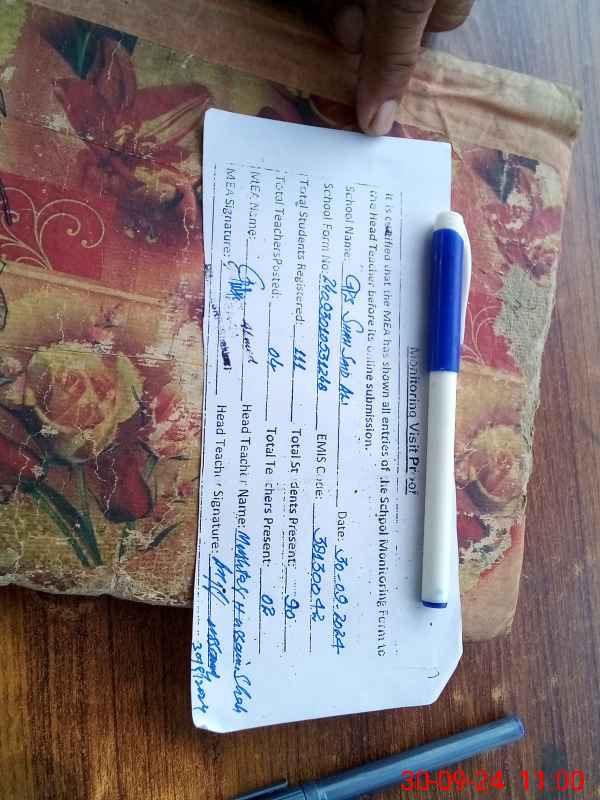 Monitoring Visit Proof
It is certified that the MEA has shown all entries of the School Monitoring Form to
the Head Teacher before its online submission.
School Name: GPS Date: 30-09-2024
School Form No. EMIS Code: 38430042
Total Students Registered: 111 Total Students Present: 90
Total Teachers Posted: 04 Total Teachers Present: 02
MEA Name: Ahmad Head Teacher Name: Hussain Shah
MEA Signature: Head Teacher Signature:
30/9/2024
30-09-24 11:00